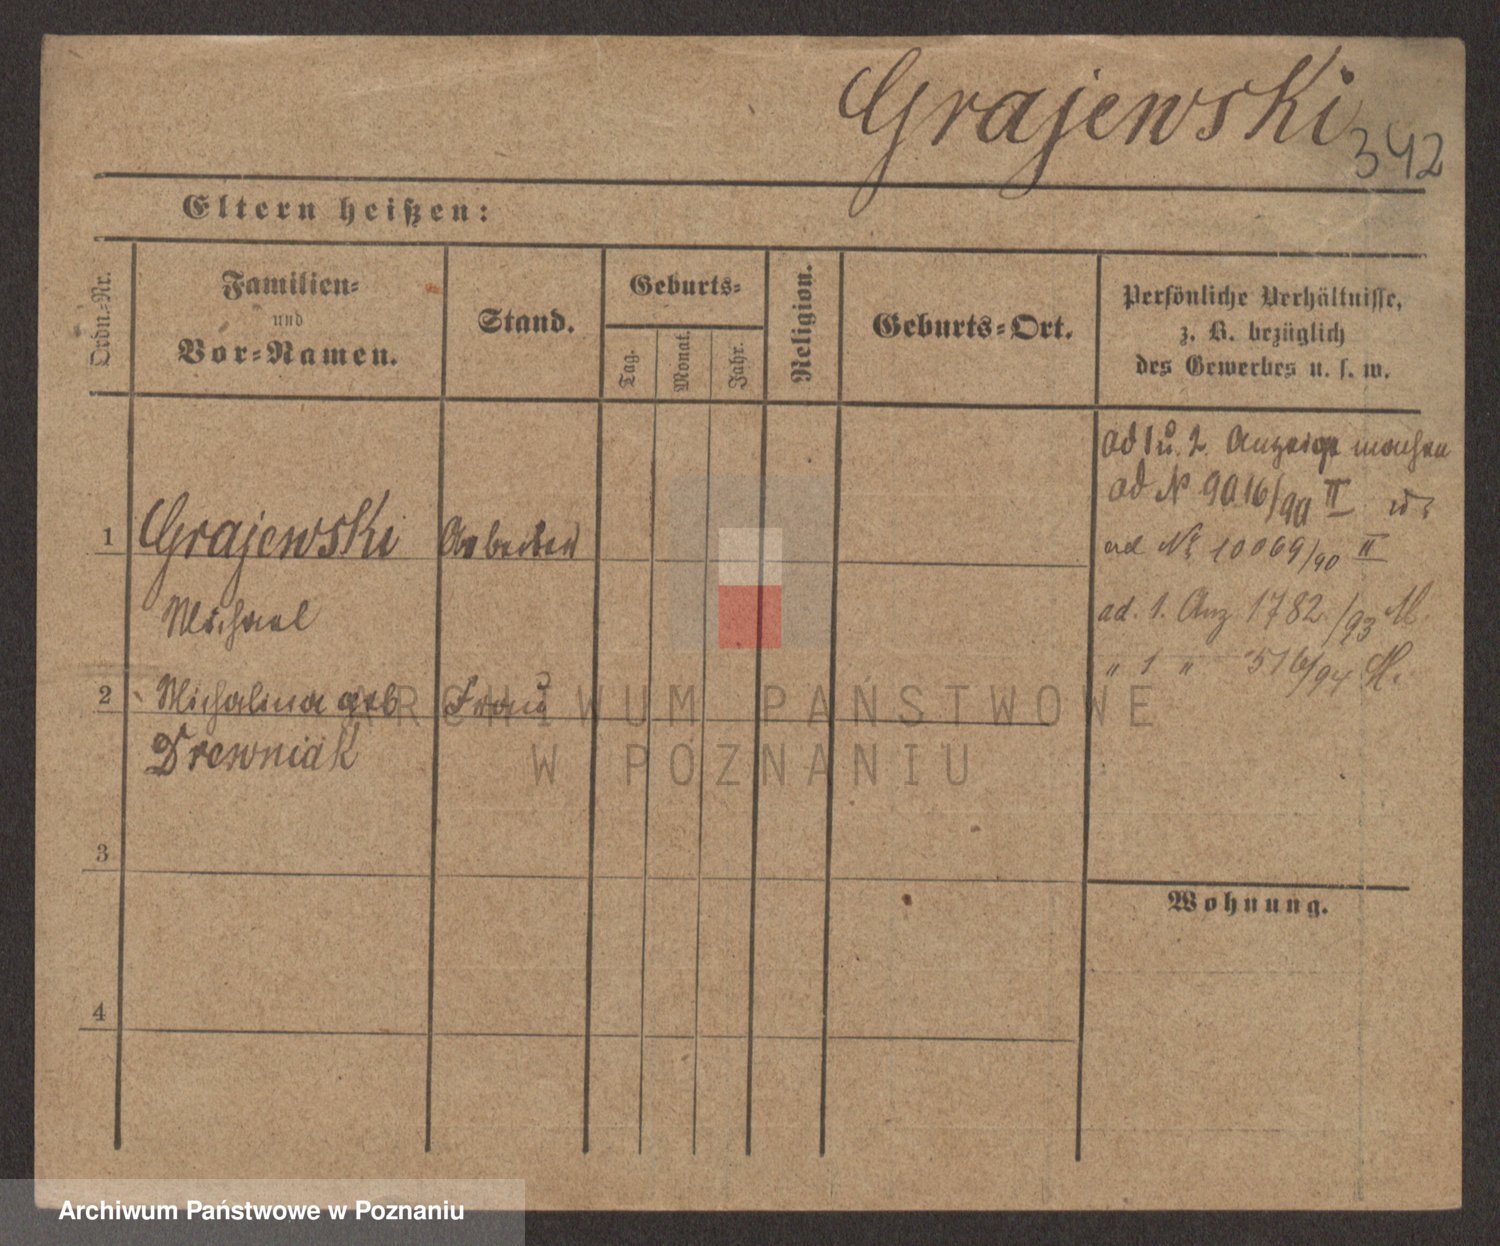 Grajewski
342
Eltern heißen:
Ordn.-Nr.
Familien-
und
Vor-Namen.
Stand.
Geburts-
Tag.
Monat.
Jahr.
Religion.
Geburts-Ort.
Persönliche Verhältnisse,
z. B. bezüglich
des Gewerbes u. s. w.
ad 1 u. 2. Anzeige machen
ad N 9016/90 II
1 Grajewski Arbeiter
ad No 10069/90 II
Michael
ad. 1. Anz 1782/93 M.
" 1 " 516/94 M.
2 Michalina geb Frau
Drewniak
ARCHIWUM PAŃSTWOWE
W POZNANIU
3
Wohnung.
4
Archiwum Państwowe w Poznaniu